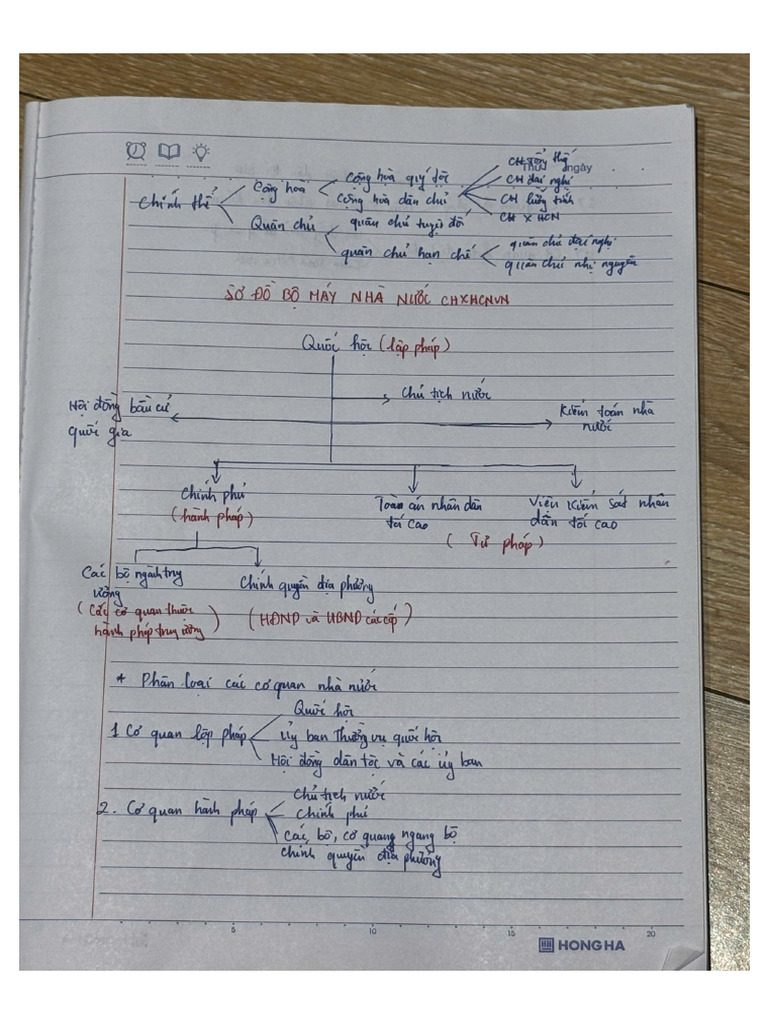 Thứ ngày
CH tổng thể
Cộng hòa quý tộc
CH đại nghị
Cộng hoà
Chính thể
Cộng hòa dân chủ
CH lưỡng tính
CH XHCN
Quân chủ
quân chủ tuyệt đối
quân chủ hạn chế
quân chủ đại nghị
quân chủ nhị nguyên
SƠ ĐỒ BỘ MÁY NHÀ NƯỚC CHXHCNVN
Quốc hội (lập pháp)
Chủ tịch nước
Hội đồng bầu cử
quốc gia
Kiểm toán nhà
nước
Chính phủ
(hành pháp)
Toàn án nhân dân
tối cao
Viện Kiểm sát nhân
dân tối cao
(Tư pháp)
Các bộ ngành trg
ương
(Các cơ quan thuộc
hành pháp trung ương)
Chính quyền địa phương
(HĐND và UBND các cấp)
* Phân loại các cơ quan nhà nước
1 Cơ quan lập pháp
Quốc hội
Ủy ban Thường vụ quốc hội
Hội đồng dân tộc và các ủy ban
2. Cơ quan hành pháp
Chủ tịch nước
Chính phủ
Các, bộ, cơ quang ngang bộ
Chính quyền địa phương
5 10 15 20
HONG HA